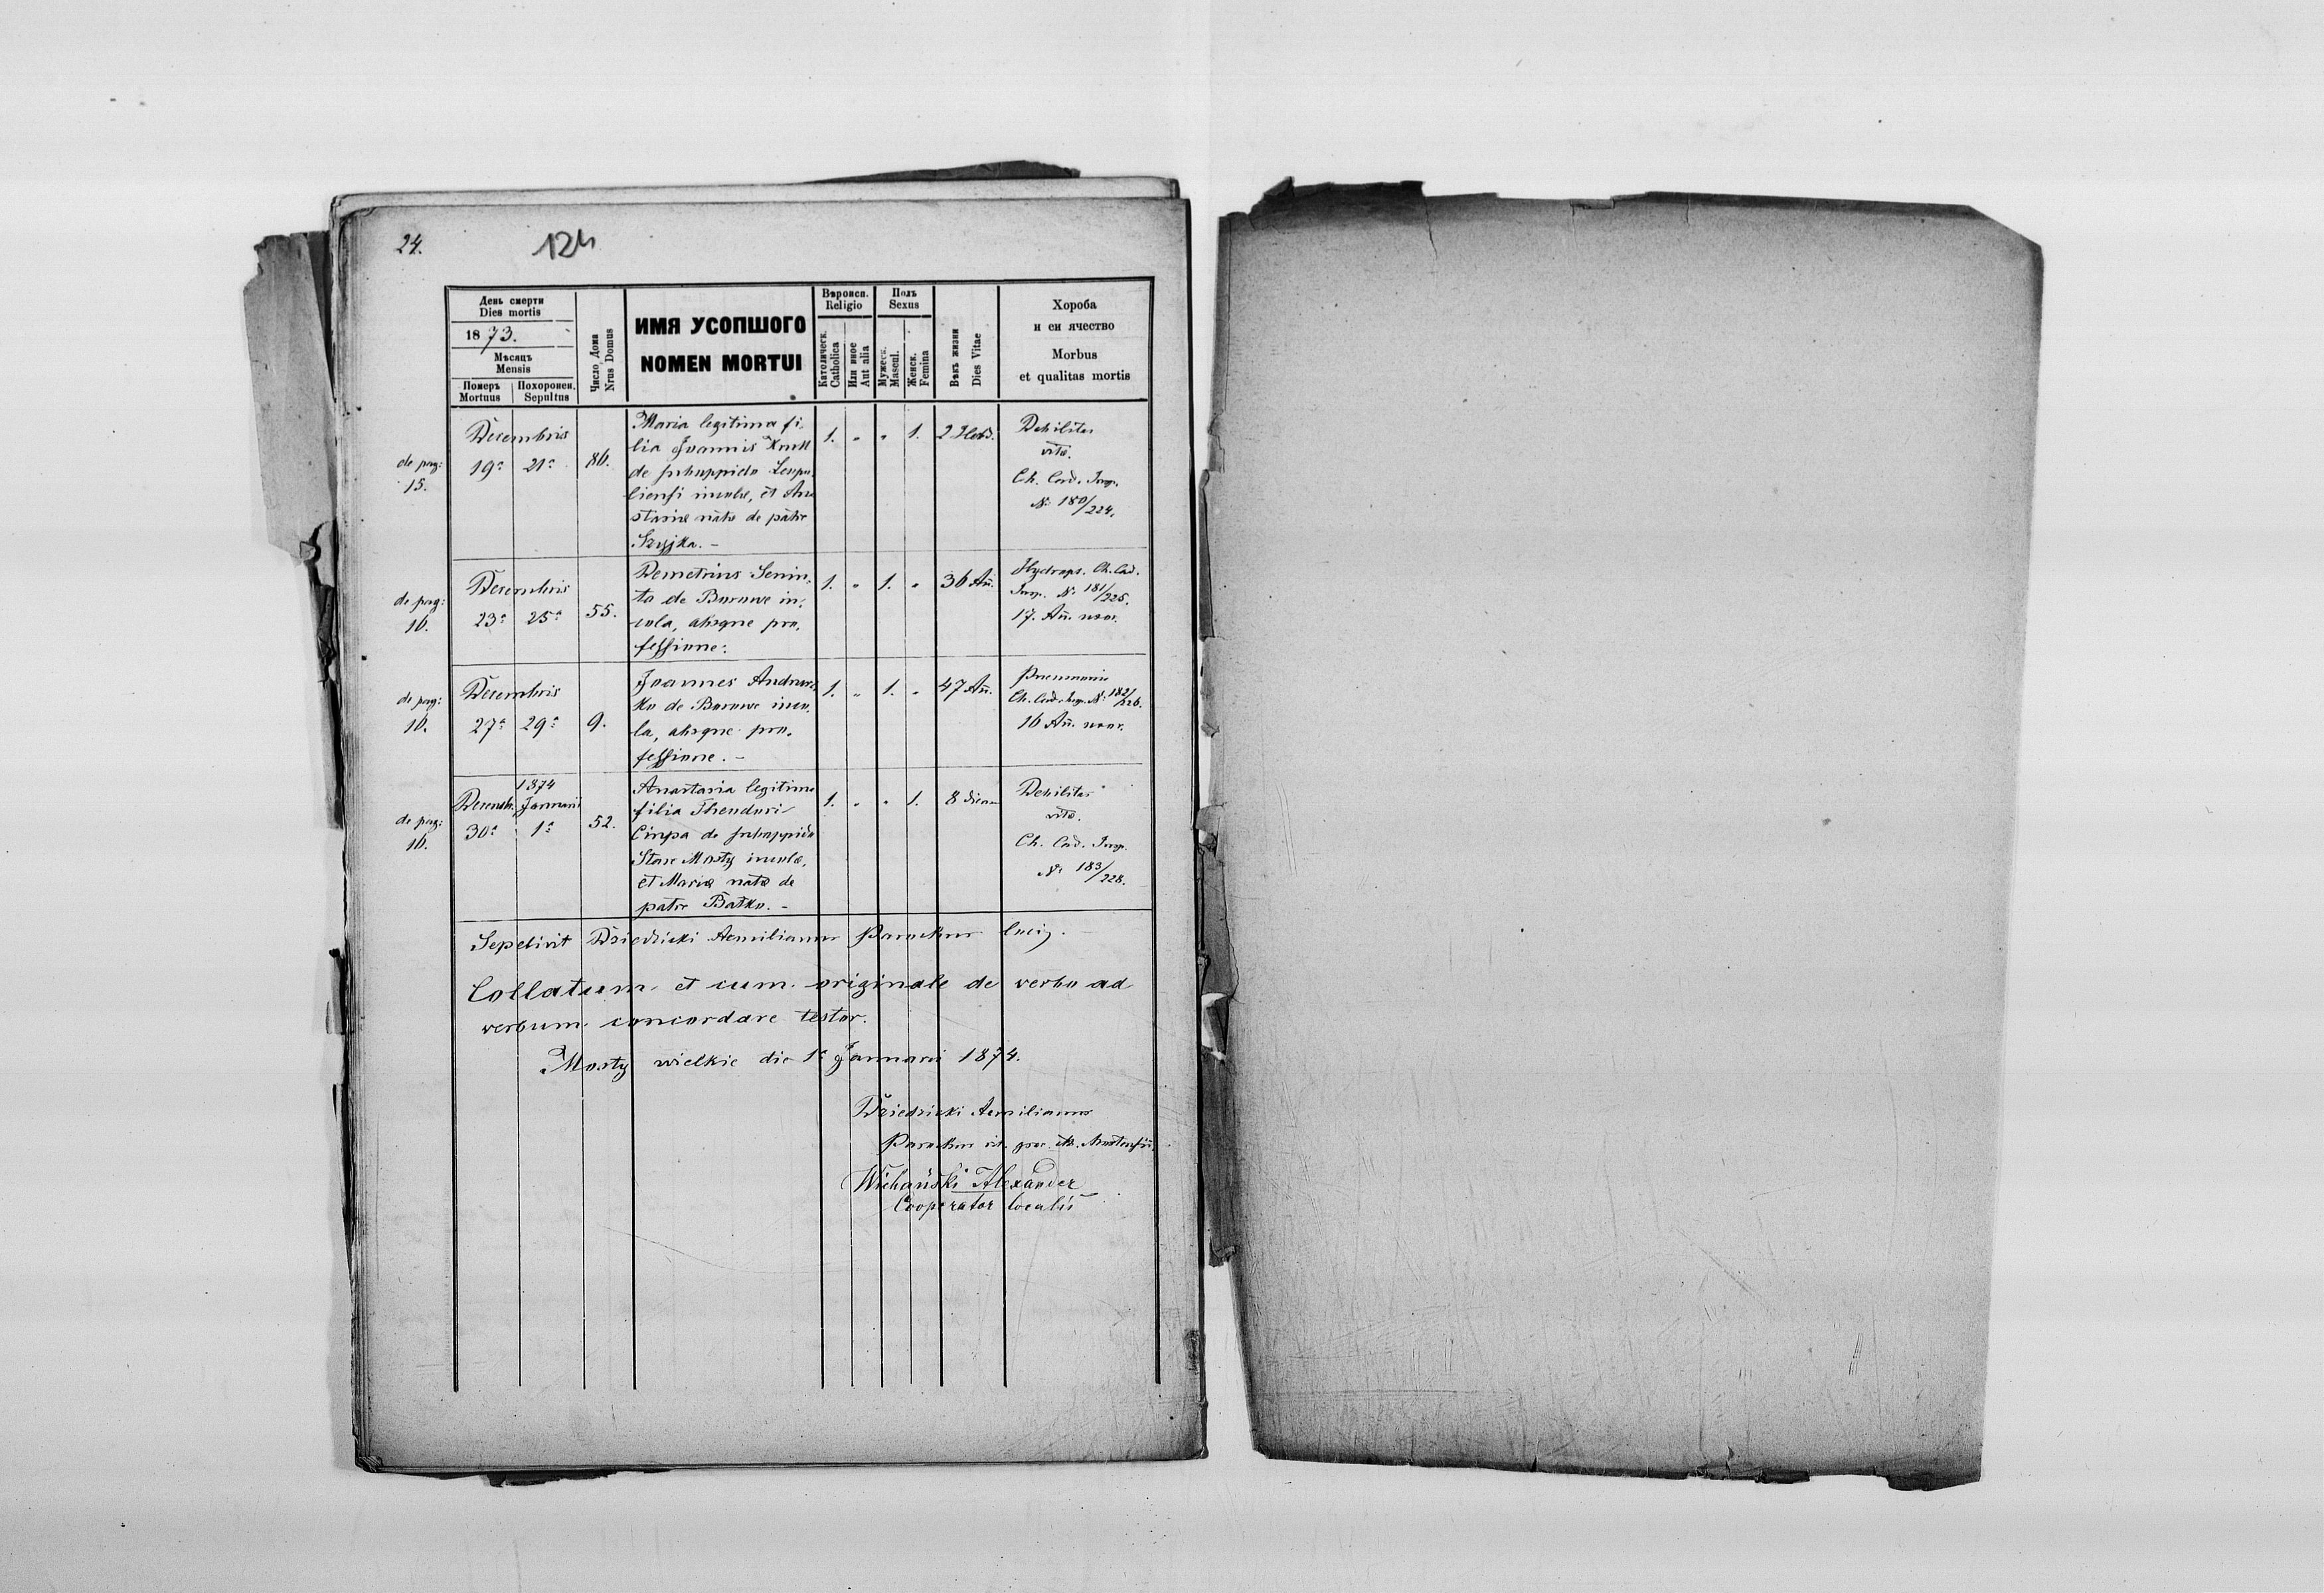 24.
124
День смерти
Dies mortis
1873.
Мѣсяць
Mensis
Померъ Похоронен.
Mortuus Sepultus
Число Дома
Nrus Domus
ИМЯ УСОПШОГО
NOMEN MORTUI
Вѣроисп.
Religio
Католическ.
Catholica
Или иное
Aut alia
Полъ
Sexus
Мужеск.
Mascul.
Женск.
Femina
Вѣкъ жизни
Dies Vitae
Хороба
и еи ячество
Morbus
et qualitas mortis
de pag:
15.
Decembris
19ª 21ª
86.
Maria legitima fi-
lia Joannis
de suboppido
incolæ, et Ana
stasiæ natæ de patre
Szyjka. –
1. " " 1.
2 Hebd.
Debilitas
vitæ.
Ch. Cad. Insp.
N: 180/224.
de pag:
16.
Decembris
23ª 25ª
55.
Demetrius Senin-
ta de Borowe in-
cola, absque pro-
fessione:
1. " 1. "
36 Añ.
Hydrops. Ch. Cad.
Insp. N: 181/225.
17. Añ. uxor.
de pag:
16.
Decembris
27ª 29ª
9.
Joannes
ko de Borowe inco-
la, absque pro-
fessione. –
1. " 1. "
47 Añ.
Pneumonia
Ch. Cad. Insp. N: 182/226.
16 Añ. uxor.
de pag:
16.
1874
Decemb. Januarii
30ª 1ª
52.
Anastasia legitima
filia Theodori
Cirpa de suboppido
Stare Mosty incolæ,
et Mariæ natæ de
patre Batko. –
1. " " 1.
8 dierum
Debilitas
vitæ.
Ch. Cad. Insp.
N: 183/228.
Sepelivit Dziedzicki Aemilianus Parochus loci.
Collatum et cum originale de verbo ad
verbum concordare testor.
Mosty wielkie die 1ª Januarii 1874.
Dziedzicki Aemilianus
Parochus rit. gr. M. Mostensis.
Wichański Alexander
Cooperator localis